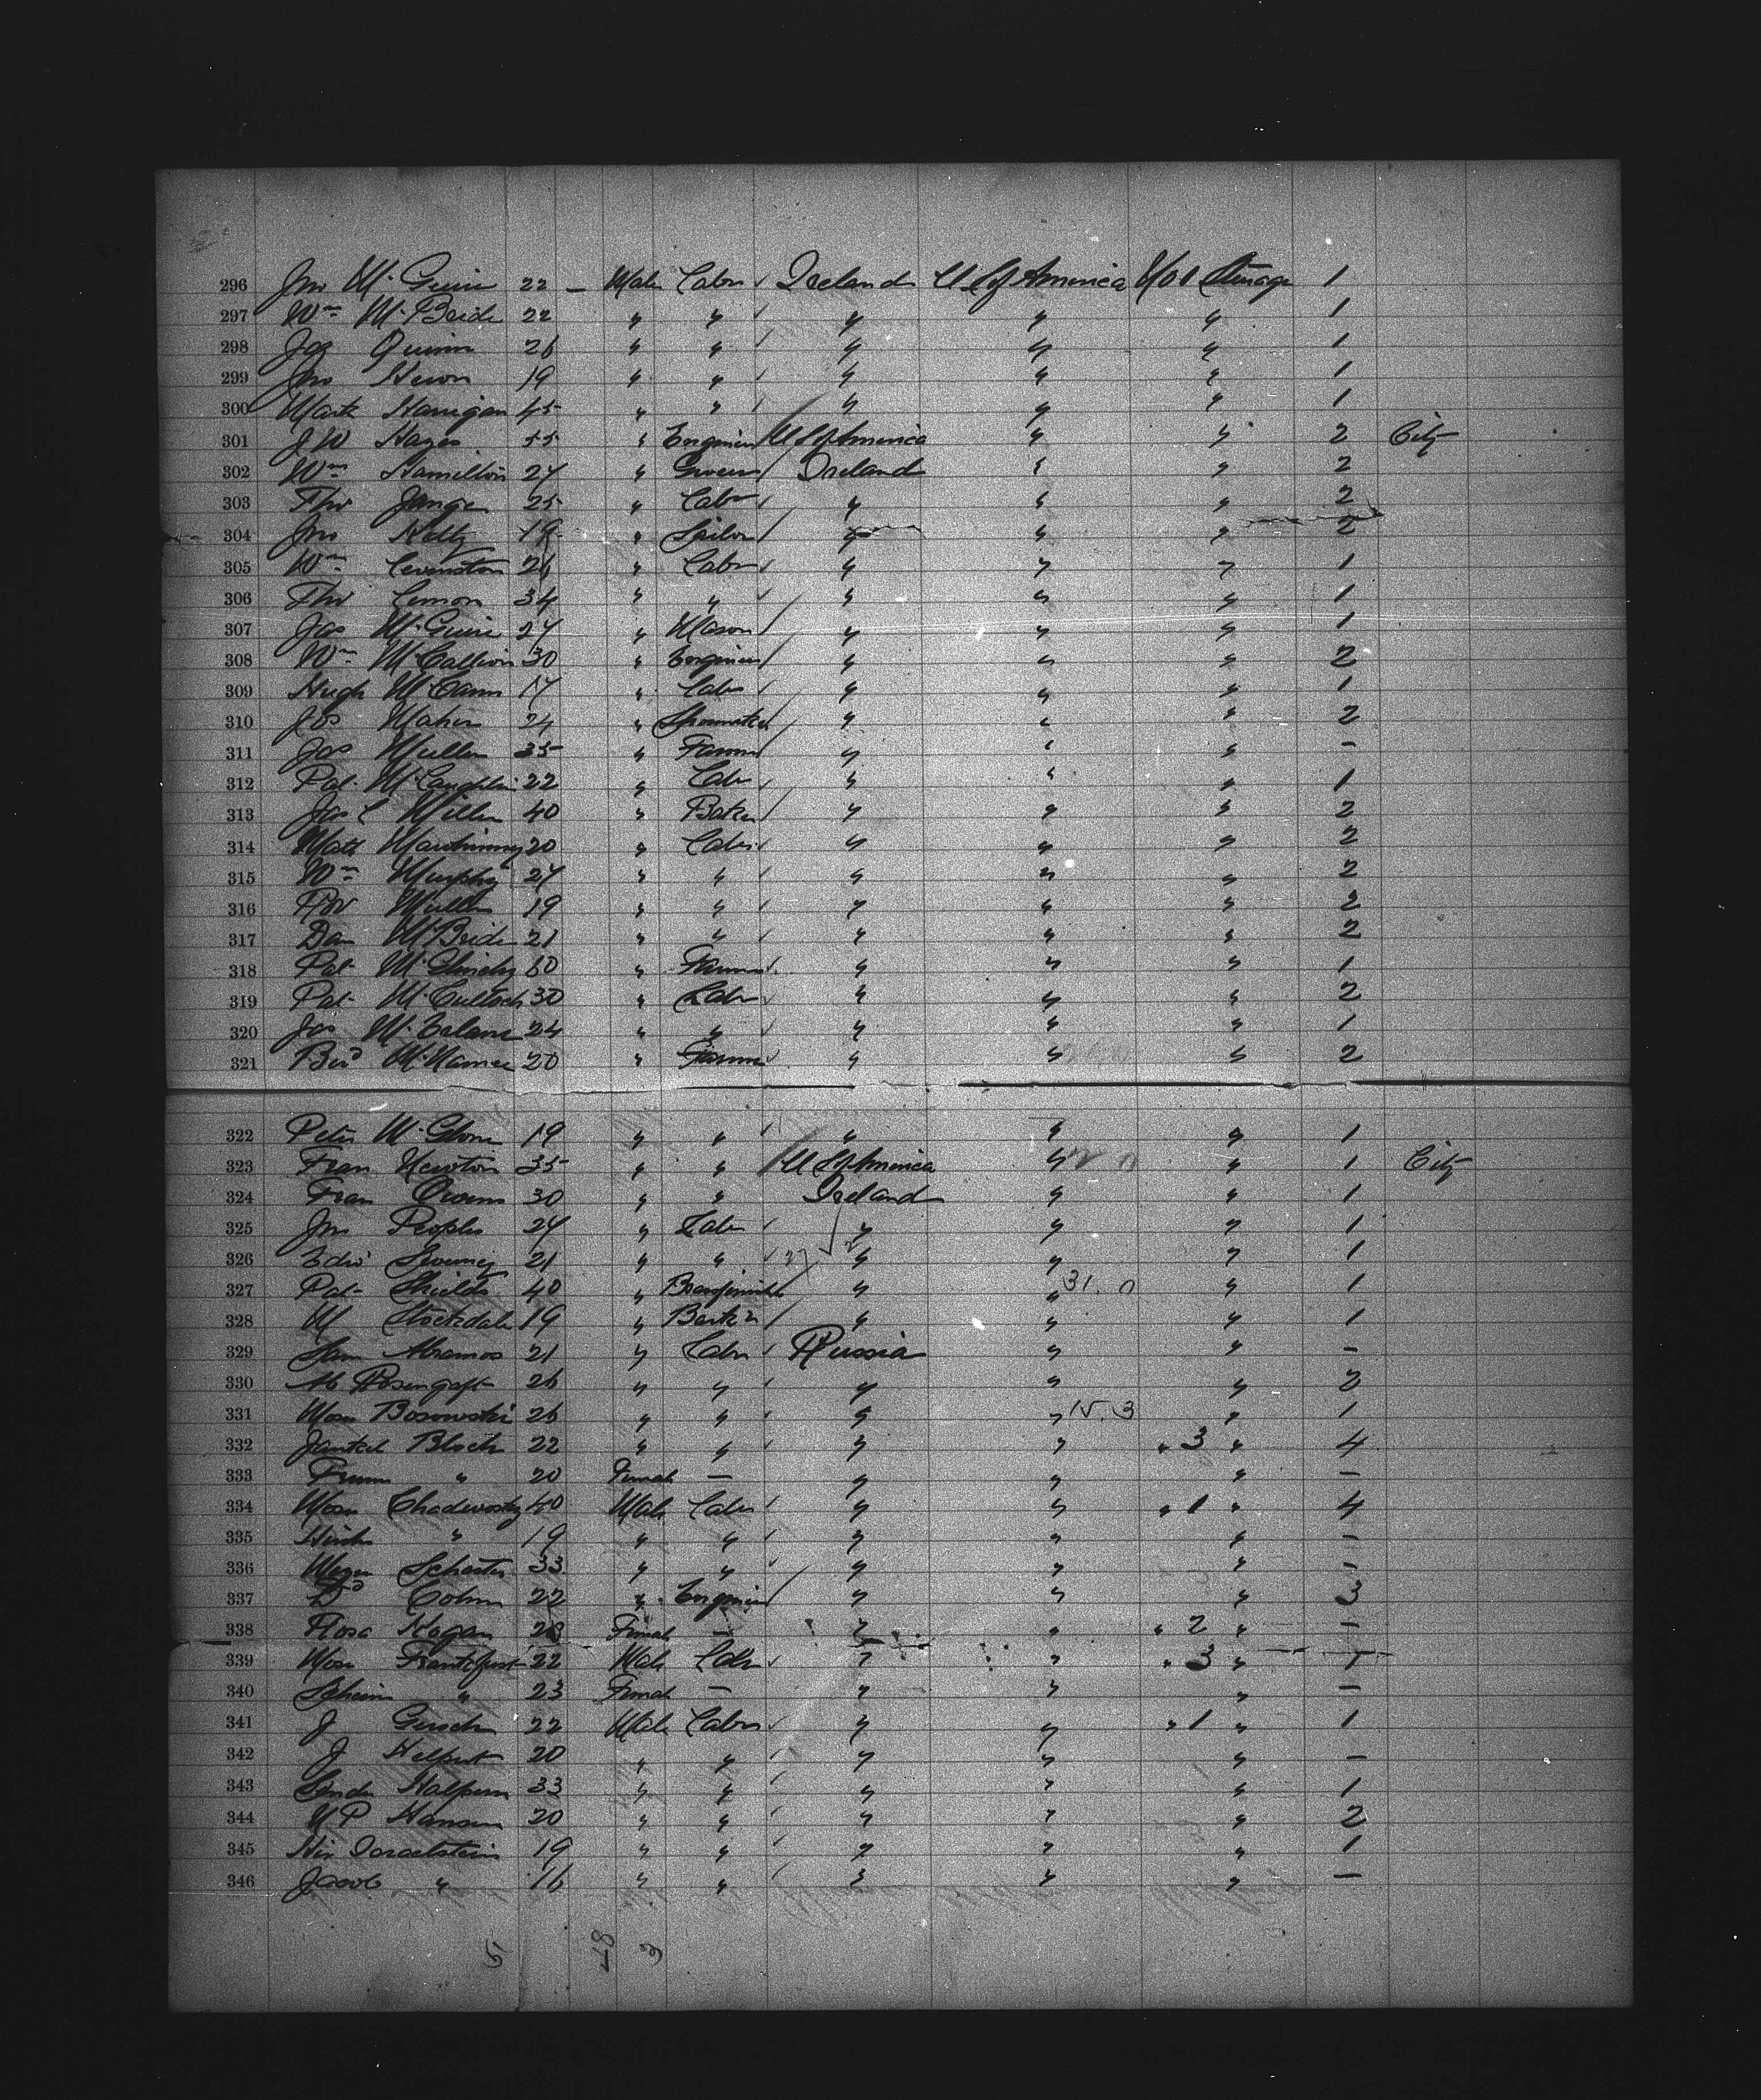 296 Jno McGuire 22 — Male Labr ✓ Ireland U S of America No 1 Steerage 1
297 Wm McBride 22 " " ✓ " " " 1
298 Jas Quinn 26 " " ✓ " " " 1
299 Jno Heron 19 " " ✓ " " " 1
300 Mark Hanigan 45 " " ✓ " " " 1
301 J W Hayes 55 " Engineer / U S of America " " 2 City
302 Wm Hamilton 27 " Grocer / Ireland " " 2
303 Tho 25 " Labr ✓ " " " 2
304 Jno Kelly 19 " / " " " 2
305 Wm Levinston 26 " Labr ✓ " " " 1
306 Tho Lemon 34 " " ✓ " " " 1
307 Jas McGuire 27 " Mason / " " " 1
308 Wm McCallion 30 " Engineer / " " " 2
309 Hugh McCann 17 " Labr ✓ " " " 1
310 Jos Maher 24 " Shoemaker / " " " 2
311 Jas Mullen 35 " Farmer / " " " –
312 Pat McLaughlin 22 " Labr ✓ " " " 1
313 Jas C Miller 40 " Baker / " " " 2
314 Matt Mawhinney 20 " Labr ✓ " " " 2
315 Wm Murphy 27 " " ✓ " " " 2
316 Mullen 19 " " ✓ " " " 2
317 Dan McBride 21 " " ✓ " " " 2
318 Pat McGlinchy 60 " Farmer ✓ " " " 1
319 Pat McCulloch 30 " Labr ✓ " " " 2
320 Jas 24 " " ✓ " " " 1
321 Bd McNamee 20 " Farmer ✓ " " " 2
322 Peter McGlone 19 " " ✓ " " " 1
323 Fran Newton 35 " " / U S of America " " 1 City
324 Fran Owens 30 " " Ireland " " 1
325 Jno Peoples 24 " Labr ✓ " " " 1
326 Edwd Sweeney 21 " " ✓ " " " 1
327 Pat Shields 40 " / " " 31.0 " 1
328 W Stockdale 19 " / " " " 1
329 Sam Abramos 21 " Labr ✓ Russia " " –
330 Ab Rosengaft 26 " " ✓ " " " 2
331 Mose Bosowski 26 " " ✓ " " 15.3 " 1
332 Jankel Bloch 22 " " ✓ " " " 3 " 4
333 " 20 Female — " " " –
334 Mose 40 Male Labr ✓ " " " 1 " 4
335 Hirsh " 19 " " ✓ " " " –
336 Meyer Schester 33 " " ✓ " " " –
337 Dd Cohen 22 " Engineer / " " " 3
338 Rosa Kogan Female — " " " 2 " –
339 Mose Frankfurt 22 Male Labr ✓ " " " 3 " 1
340 " 23 Female — " " " –
341 J Gersch 22 Male Labr ✓ " " " 1 " 1
342 J Helpert 20 " " ✓ " " " –
343 Halpern 33 " " ✓ " " " 1
344 Hansen 20 " " ✓ " " " 2
345 Hir Israelstein 19 " " ✓ " " " 1
346 Jacob " 16 " " ✓ " " " –